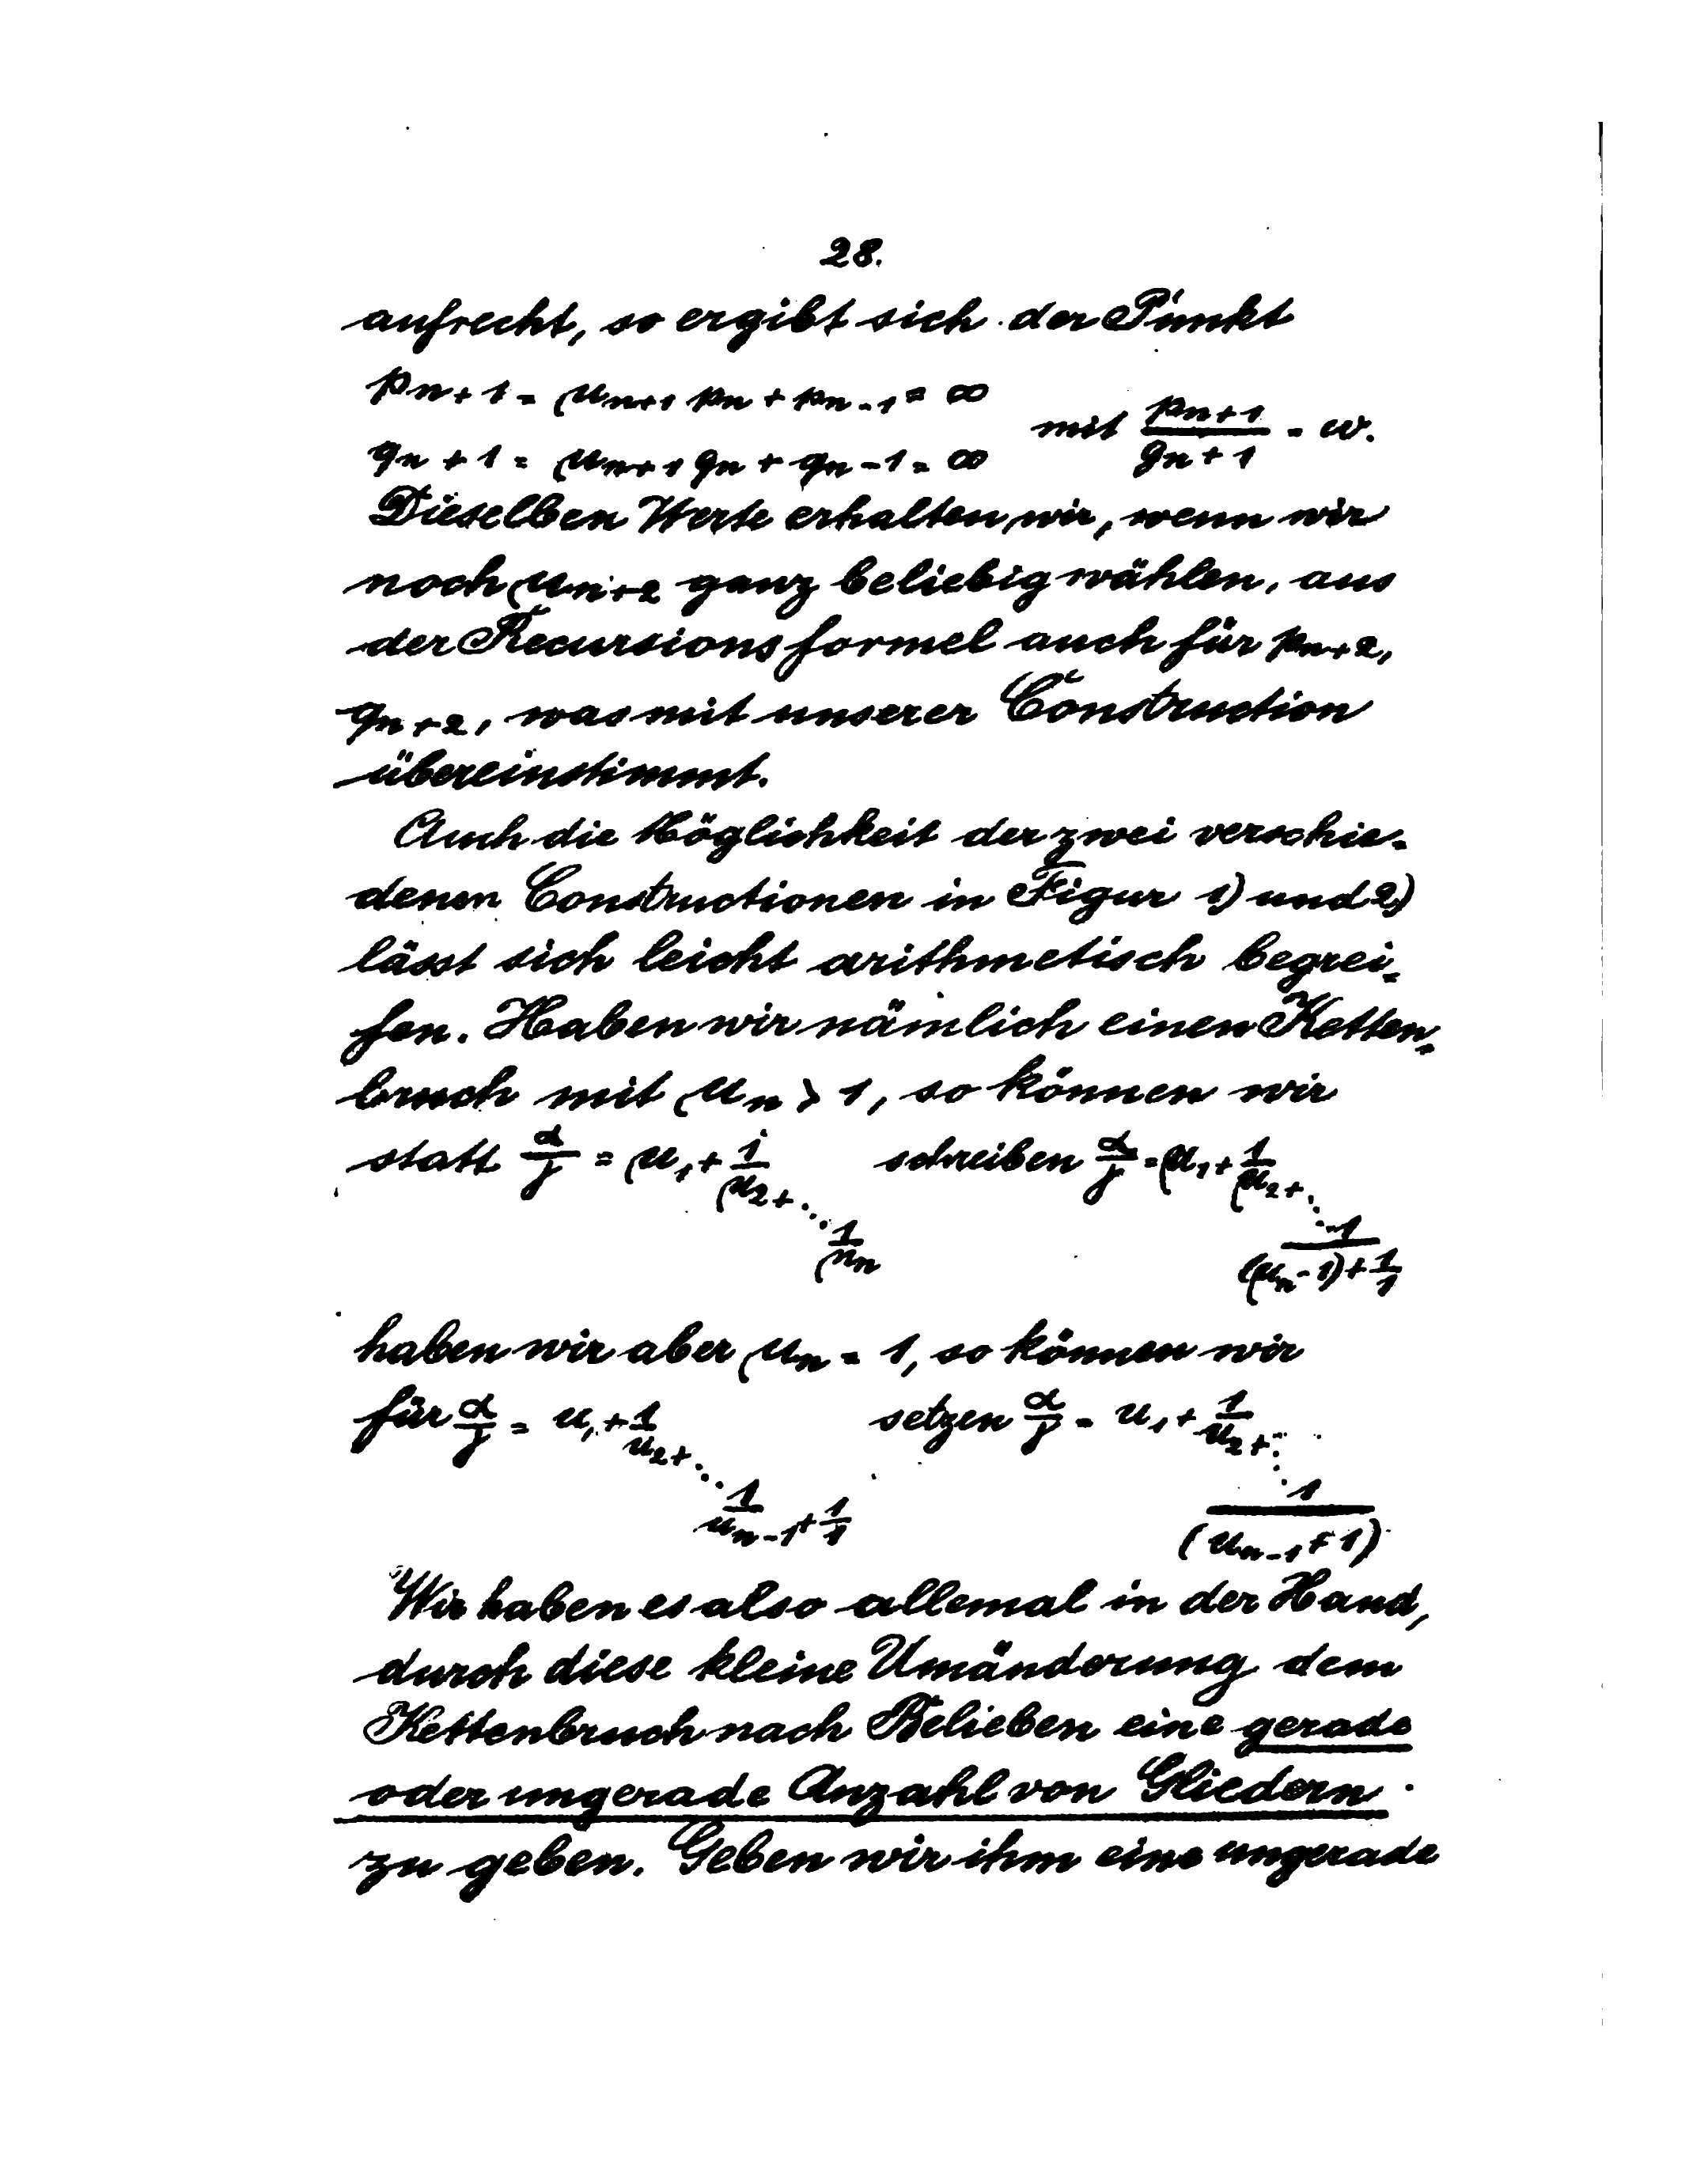 28.
aufrecht, so ergibt sich der Punkt
pₙ₊₁ = μₙ₊₁ pₙ + pₙ₋₁ = ∞
qₙ₊₁ = μₙ₊₁ qₙ + qₙ₋₁ = ∞ mit pₙ₊₁/qₙ₊₁ = ω.
Dieselben Werte erhalten wir, wenn wir
noch μₙ₊₂ ganz beliebig wählen, aus
der Recursionsformel auch für pₙ₊₂,
qₙ₊₂, was mit unserer Construction
übereinstimmt.
Auch die Möglichkeit der zwei verschie-
denen Constructionen in Figur 1) und 2)
lässt sich leicht arithmetisch begrei-
fen. Haben wir nämlich einen Ketten-
bruch mit μₙ > 1, so können wir
statt α/γ = μ₁ + 1/μ₂ + ... 1/μₙ schreiben α/γ = μ₁ + 1/μ₂ + ... 1/(μₙ - 1) + 1/1
haben wir aber μₙ = 1, so können wir
für α/γ = u₁ + 1/u₂ + ... 1/uₙ₋₁ + 1/1 setzen α/γ = u₁ + 1/u₂ + ... 1/(uₙ₋₁ + 1)
Wir haben es also allemal in der Hand,
durch diese kleine Umänderung dem
Kettenbruch nach Belieben eine gerade
oder ungerade Anzahl von Gliedern
zu geben. Geben wir ihm eine ungerade